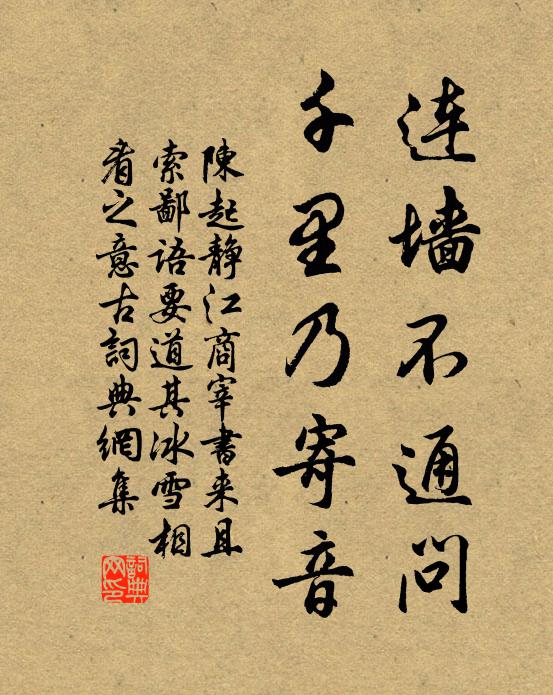 连墙不通问
千里乃寄音
陳起静江商宰書来且
索鄙语要道其冰雪相
看之意古詞典網集
詞典
网印